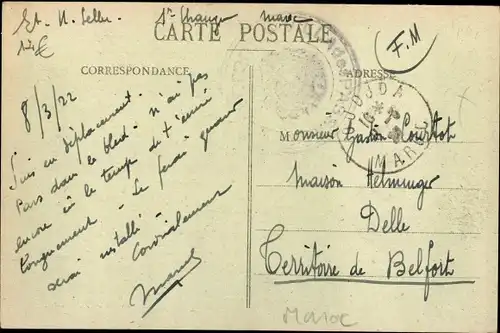 Et. H. Seller 1er Changer Maroc
CARTE POSTALE
F.M
CORRESPONDANCE
ADRESSE
OUDJDA
MAROC
8/3/22
Suis en déplacement.
Pars dans le bled - n'ai pas
encore eu le temps de t'écrire
longuement - Le ferai quand
serai installé -
Cordialement
Marcel
Monsieur Gaston Courtot
Maison Helminger
Delle
Territoire de Belfort
Maroc